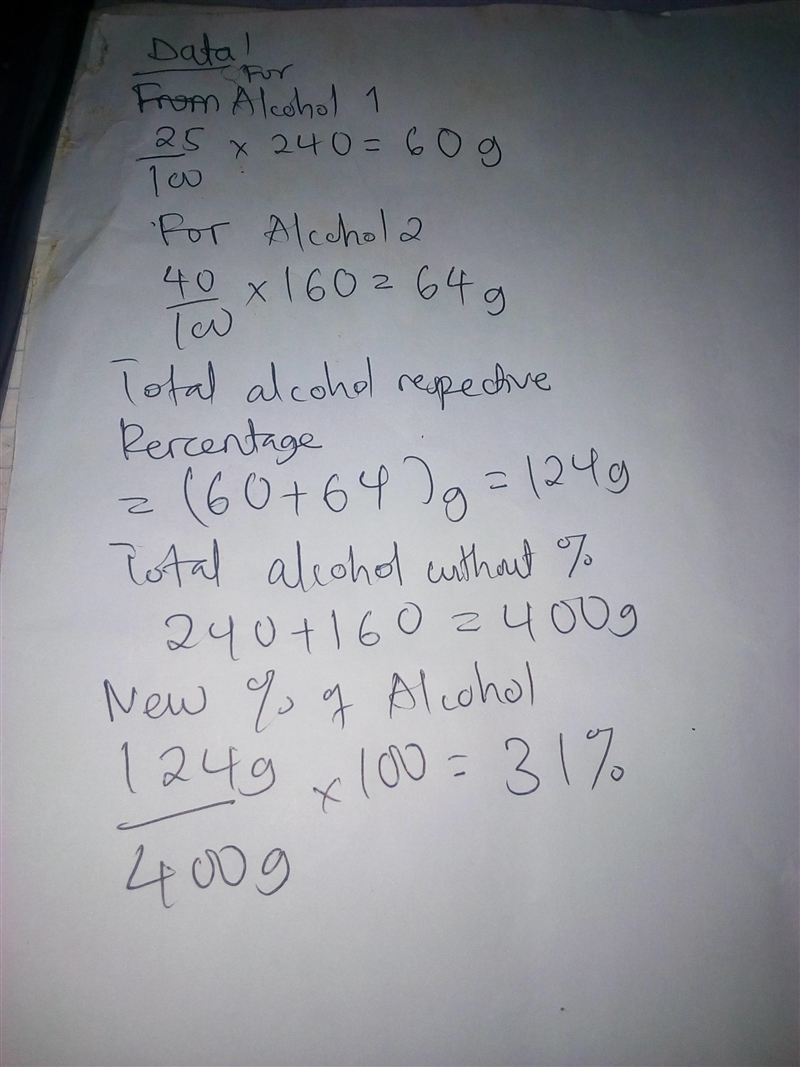 Data!
For
From Alcohol 1
25/100 × 240 = 60g
For Alcohol 2
40/100 × 160 = 64g
Total alcohol respective
Percentage
= (60+64)g = 124g
Total alcohol without %
240+160 = 400g
New % of Alcohol
124g/400g × 100 = 31%